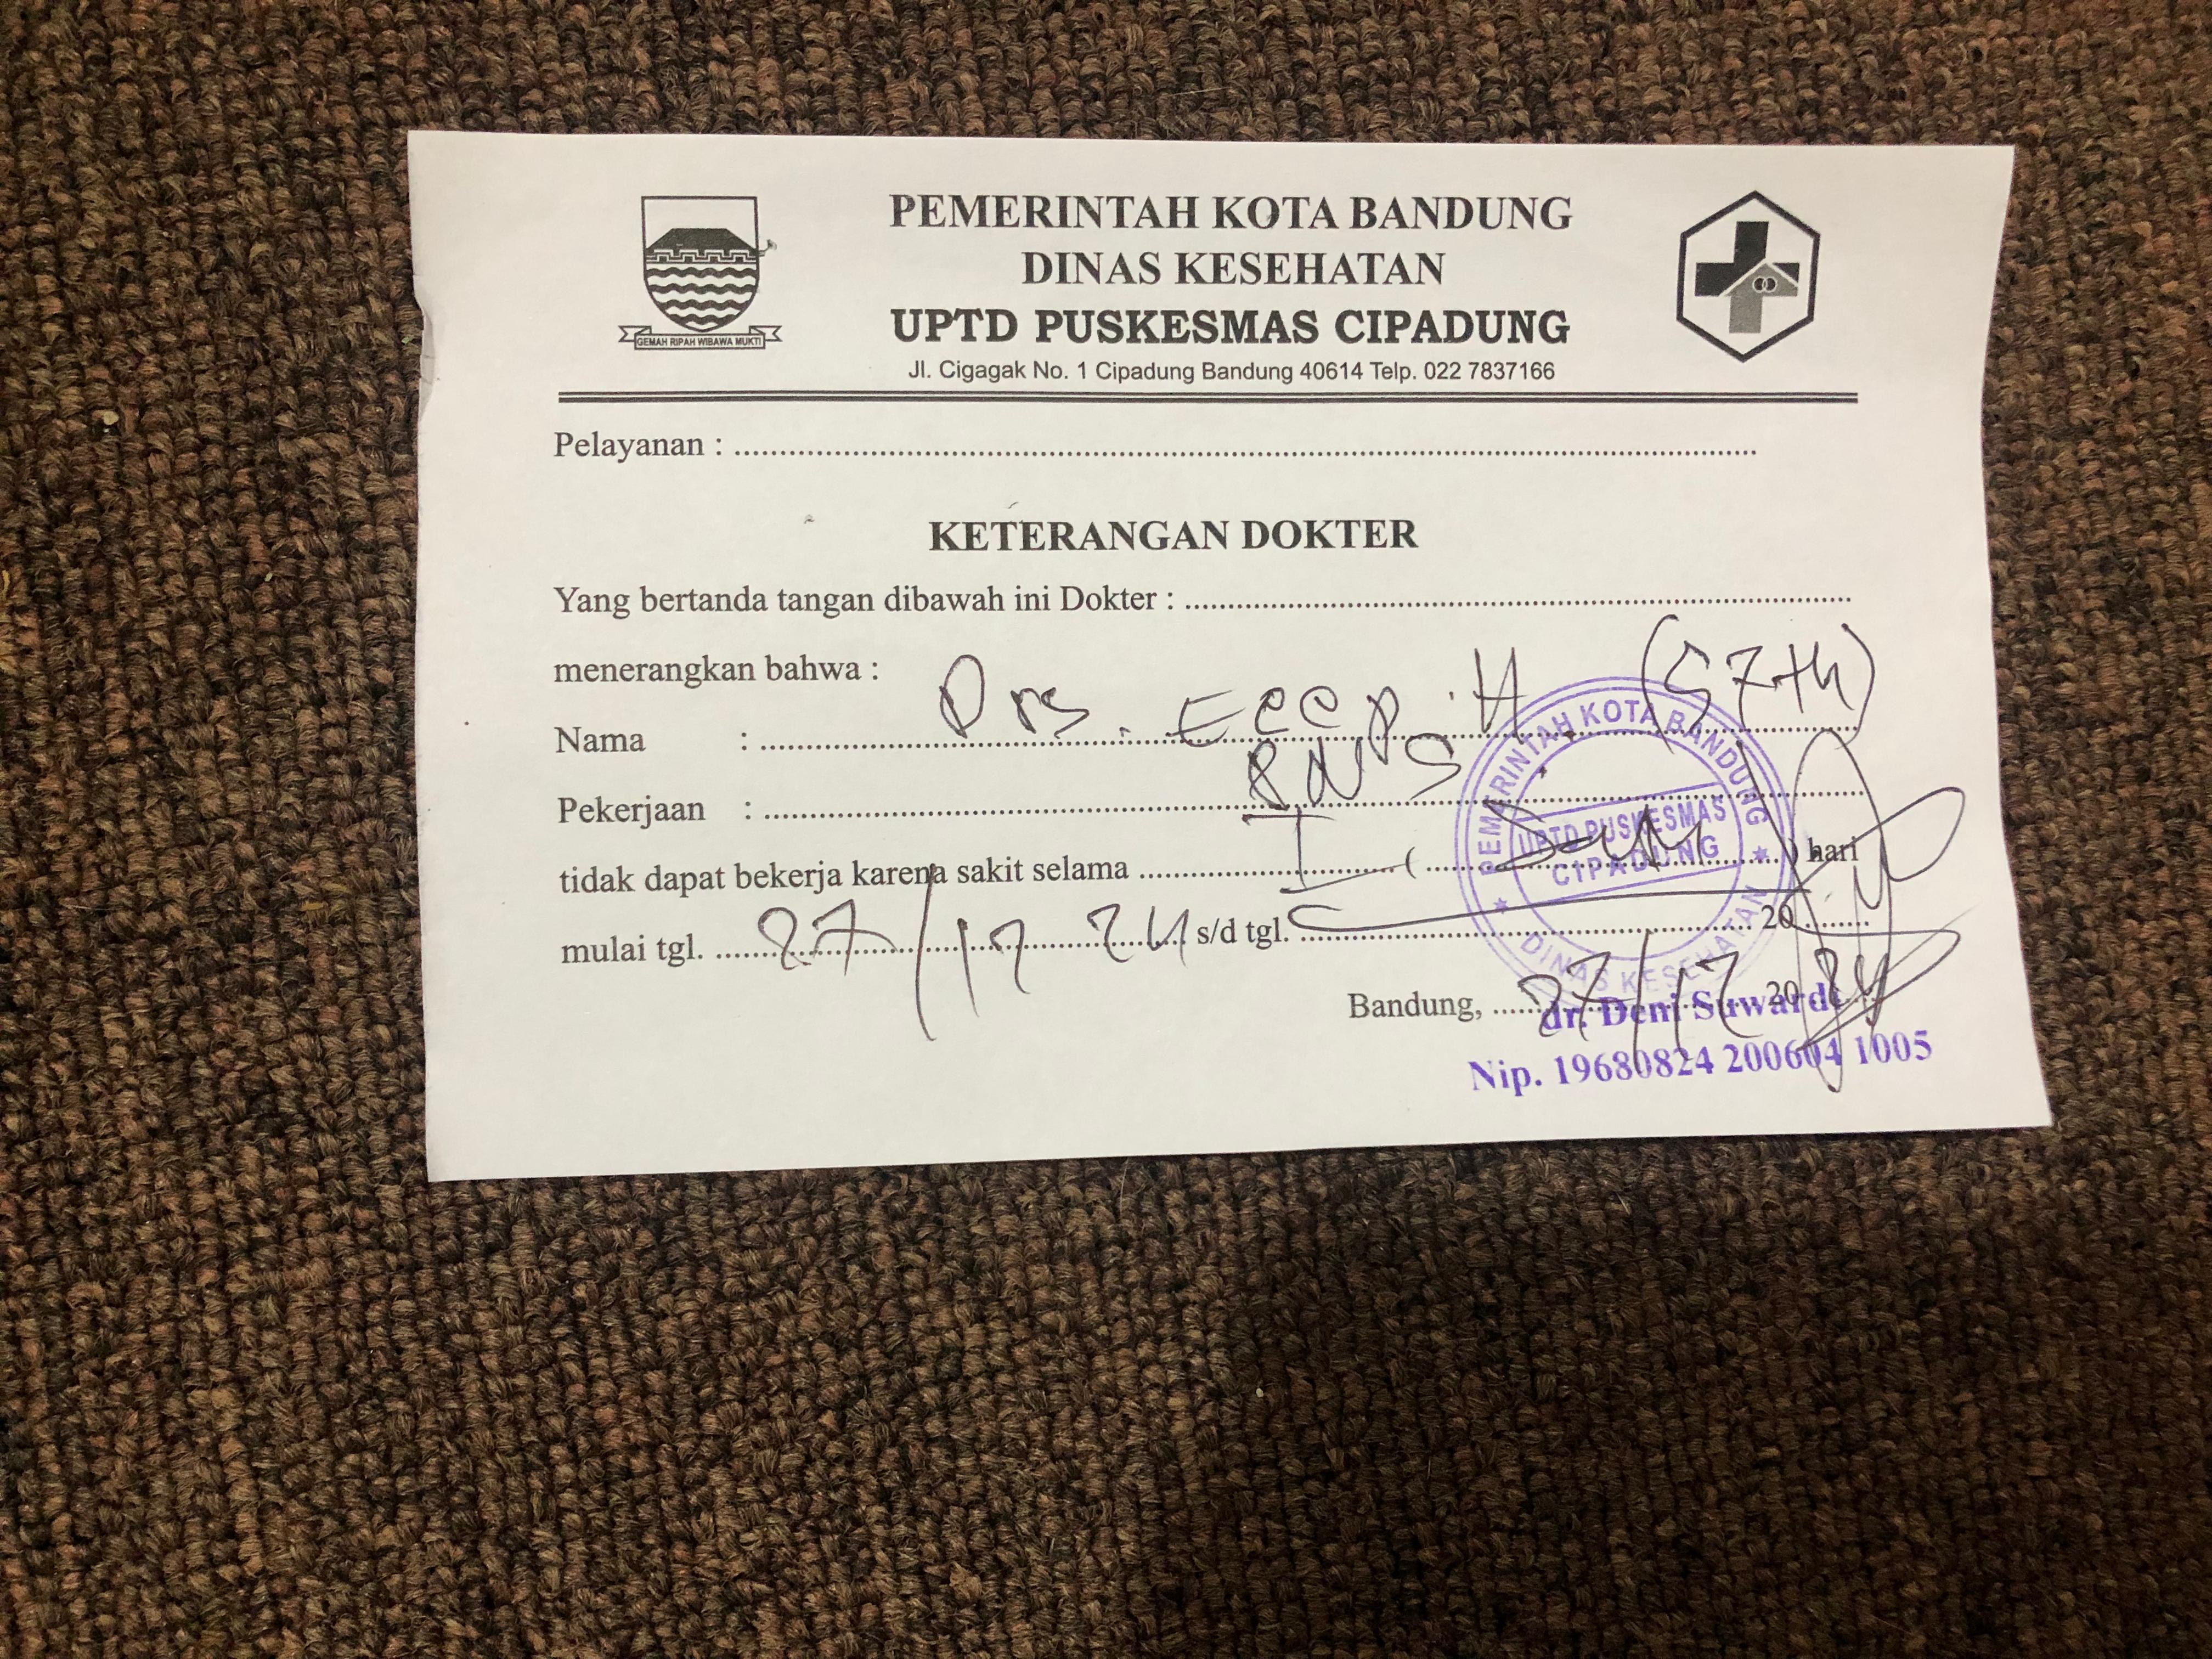 PEMERINTAH KOTA BANDUNG
DINAS KESEHATAN
UPTD PUSKESMAS CIPADUNG
Jl. Cigagak No. 1 Cipadung Bandung 40614 Telp. 022 7837166
GEMAH RIPAH WIBAWA MUKTI
Pelayanan : ....................
KETERANGAN DOKTER
Yang bertanda tangan dibawah ini Dokter : ....................
menerangkan bahwa :
Nama : Drs. Ecep . H (57 th)
Pekerjaan : PNS
tidak dapat bekerja karena sakit selama I ( Satu ) hari
mulai tgl. 27/12 24 s/d tgl. .................... 20 ........
Bandung, 27/12 2024
PEMERINTAH KOTA BANDUNG
UPTD PUSKESMAS
CIPADUNG
DINAS KESEHATAN
dr. Deni Suwardi
Nip. 19680824 200604 1005